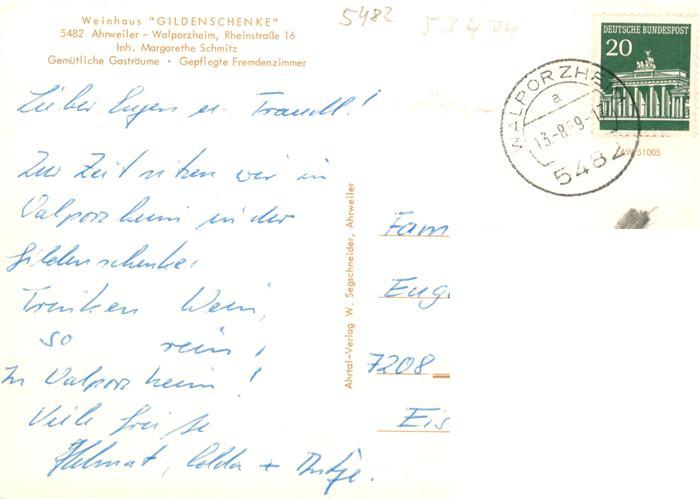 Weinhaus "GILDENSCHENKE"
5482 Ahrweiler – Walporzheim, Rheinstraße 16
Inh. Margarethe Schmitz
Gemütliche Gasträume · Gepflegte Fremdenzimmer
5482
53424
DEUTSCHE BUNDESPOST
20
WALPORZHEIM
a
13-8-69-1
5482
AW 51005
Lieber Eugen u. Traudl!
Zur Zeit sitzen wir in
Valporzheim in der
Gildenschenke.
Trinken Wein,
so rein,
In Valporzheim!
Viele Grüße
Helmut, + Antje.
Ahrtal-Verlag W. Segschneider, Ahrweiler
Fam
Eug
7208
Eis